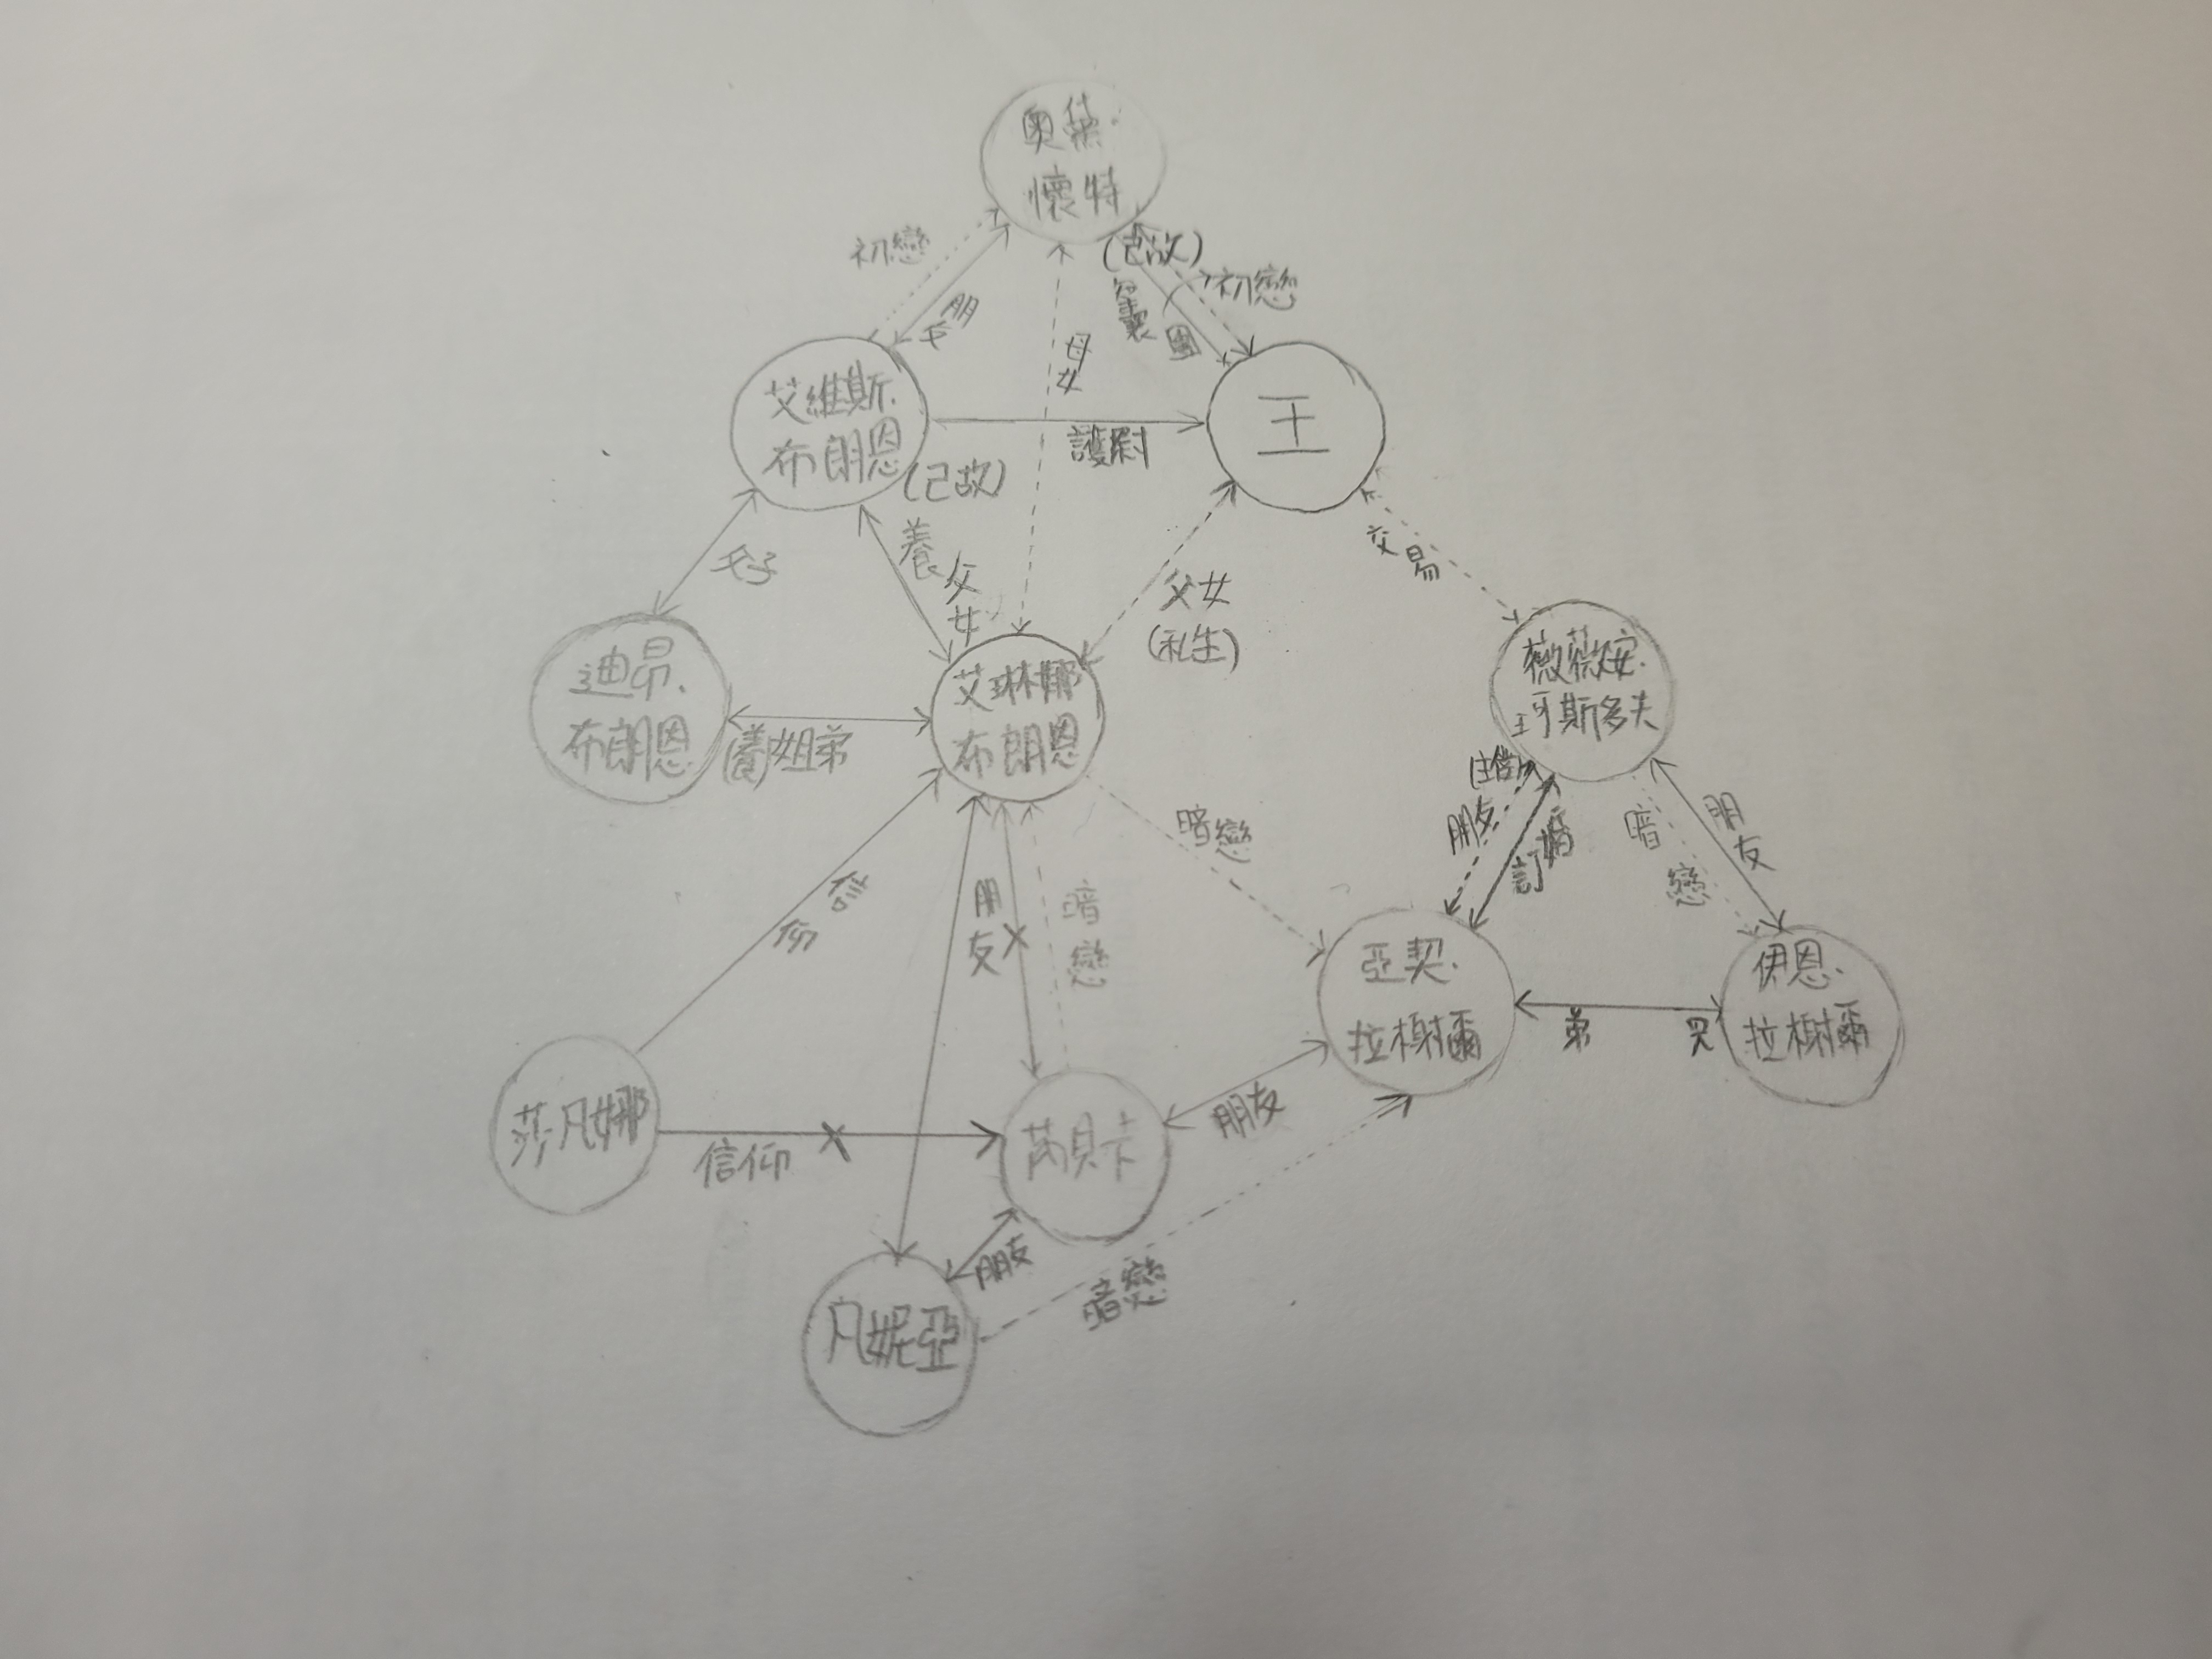 奧黛·
懷特
(已故)
初戀
朋友
母女
智囊團
初戀
艾維斯·
布朗恩
(已故)
護尉
王
父子
養父女
父女
(私生)
交易
迪昂·
布朗恩
(養)姐弟
艾琳娜
布朗恩
薇薇安·
珂斯多夫
朋友
訂婚
暗戀
朋友
暗戀
信仰
朋友
暗戀
亞契·
拉榭爾
弟 兄
伊恩·
拉榭爾
莎凡娜
信仰
芮貝卡
朋友
朋友
凡妮亞
暗戀